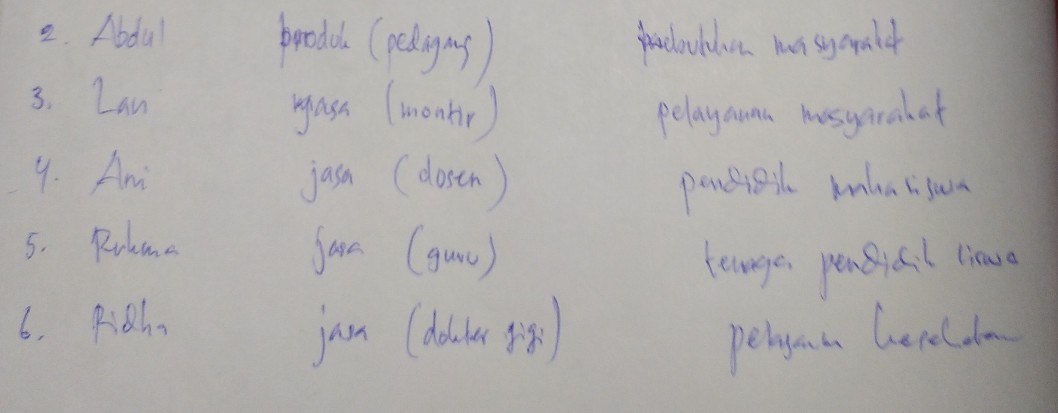 2. Abdul produk (pedagang) kebutuhan masyarakat
3. Lan jasa (montir) pelayanan masyarakat
4. Ani jasa (dosen) pendidik mahasiswa
5. Rukma jasa (guru) tenaga pendidik siswa
6. Ridha jasa (dokter gigi) pelayanan kesehatan